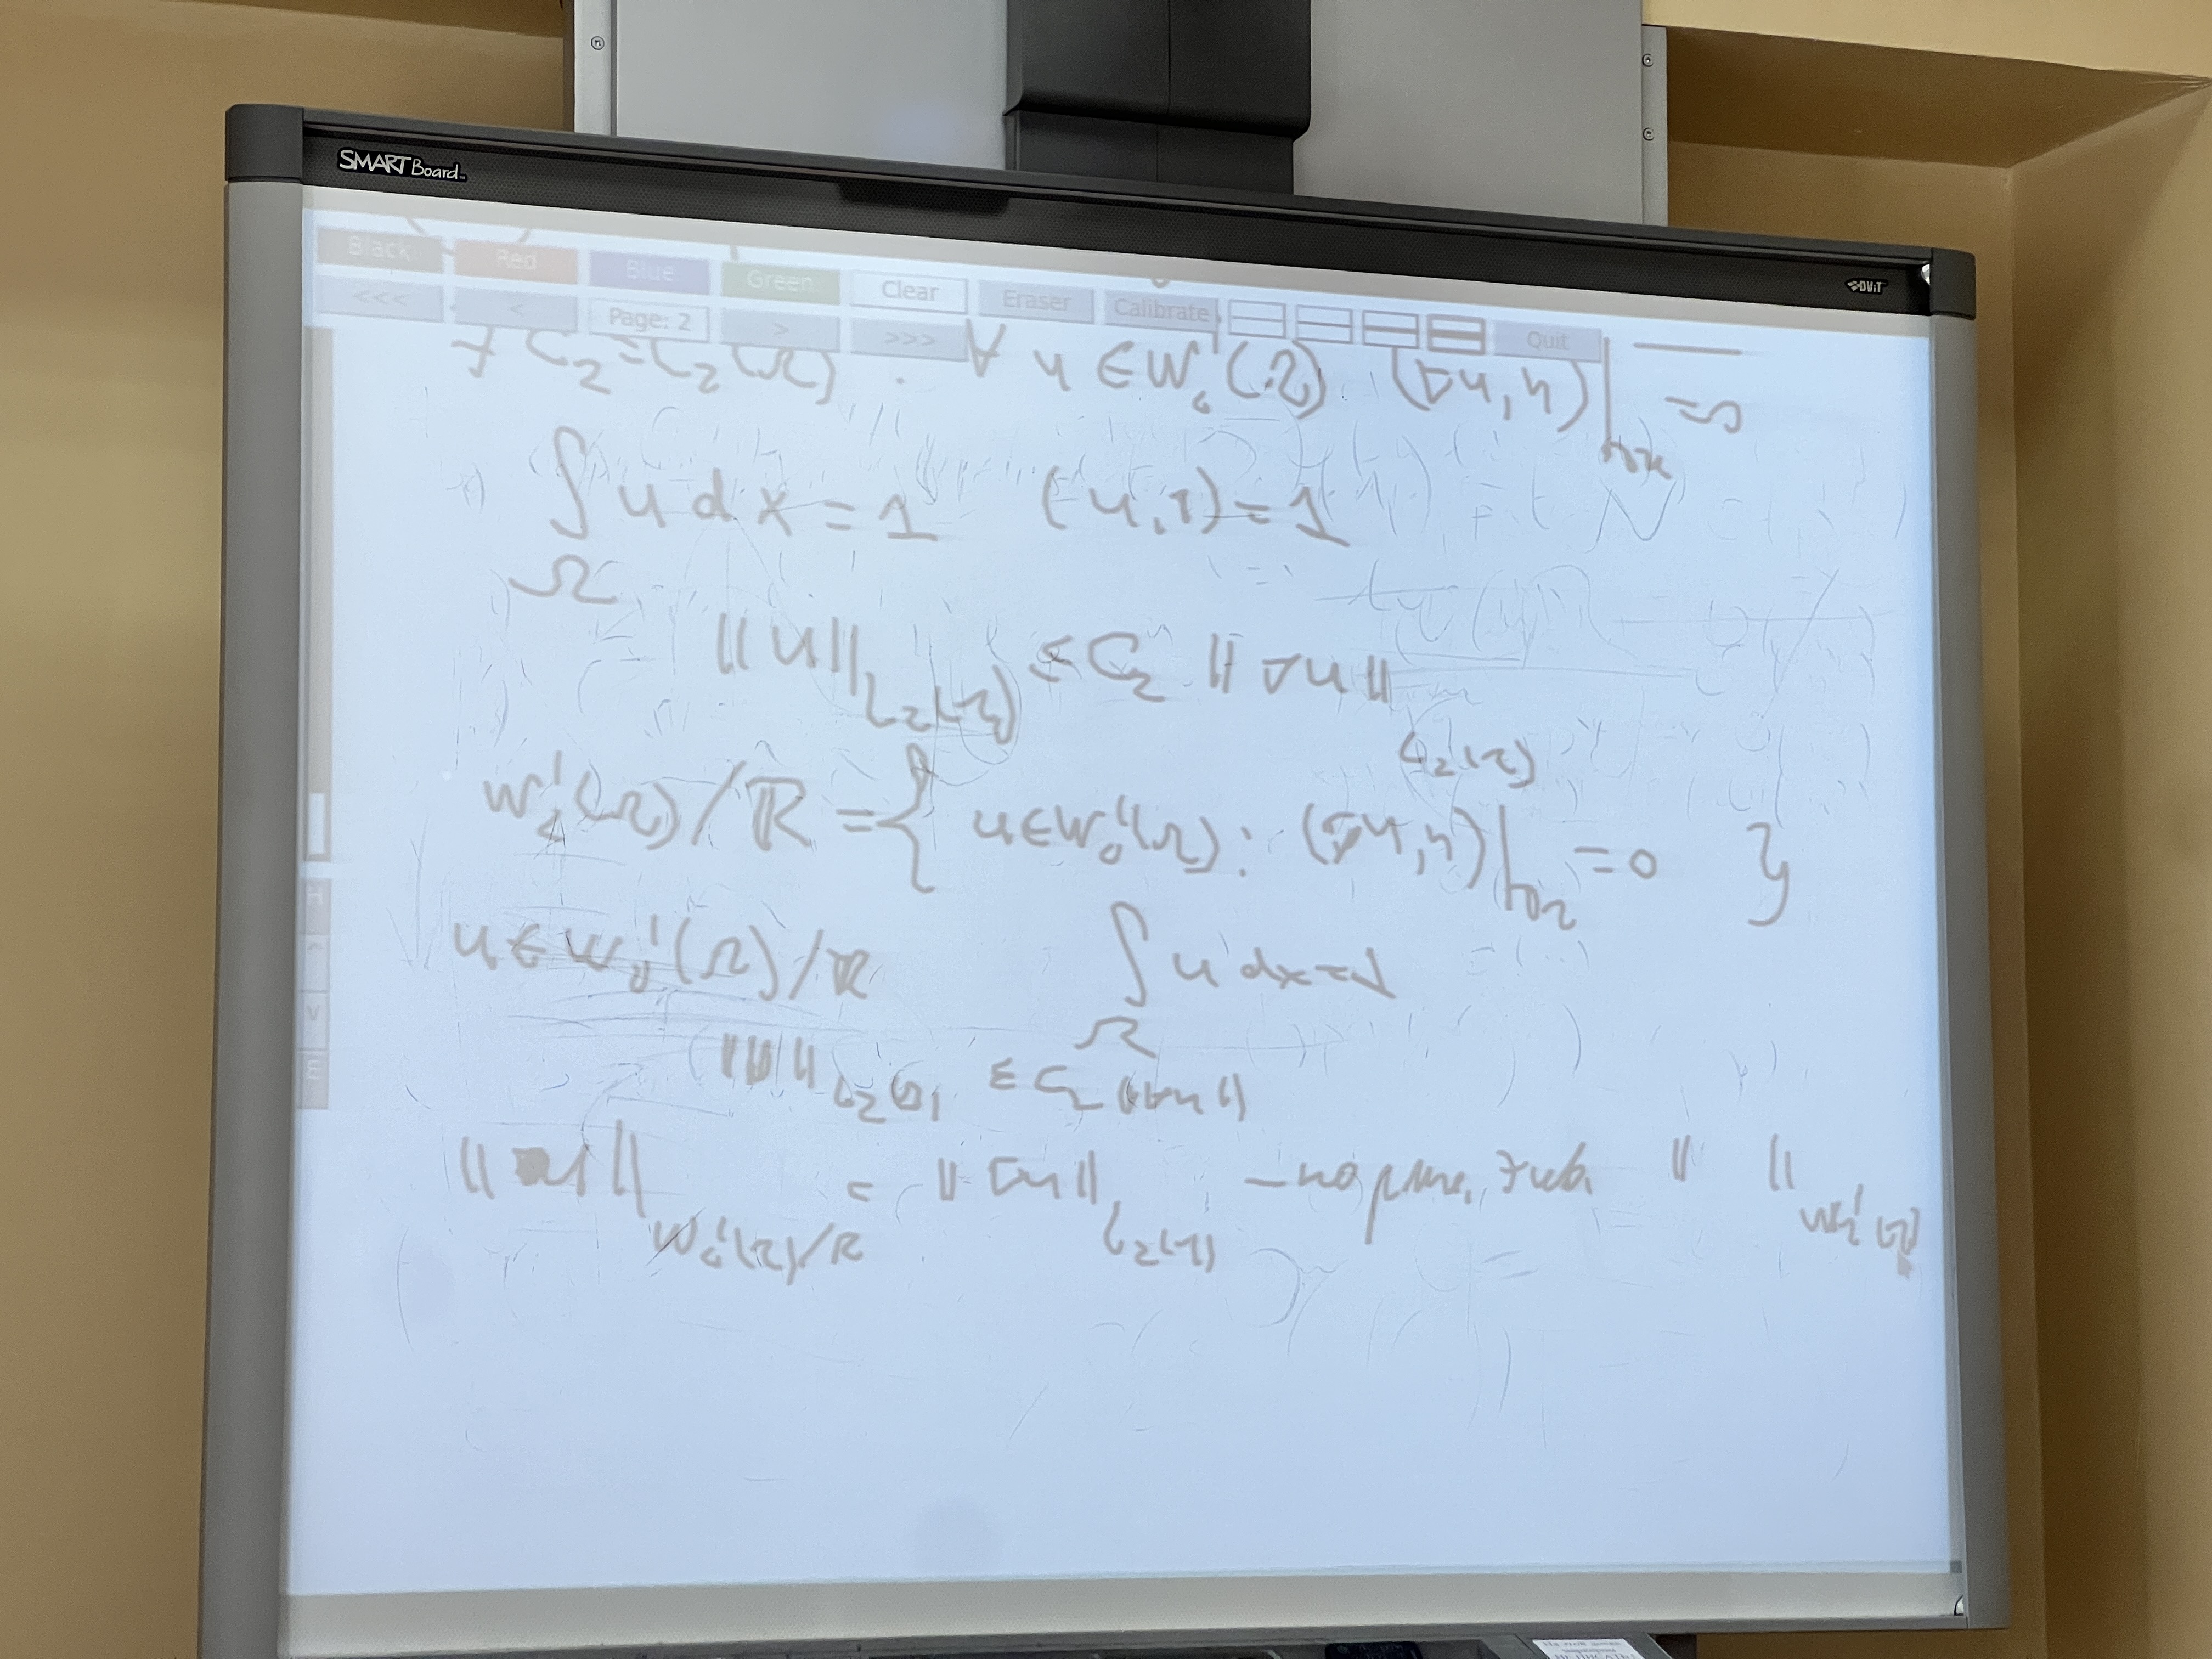 SMART Board™
DViT
Black Red Blue Green Clear Eraser Calibrate
<<< < Page: 2 > >>> Quit
∃ C₂=C₂(Ω) : ∀ u ∈ W₀¹(Ω) (∇u, n)|∂Ω =0
∫Ω u dx = 1 (u, 1) = 1
||u||L₂(Ω) ≤ C₂ ||∇u||L₂(Ω)
W₂¹(Ω)/ℝ = { u∈W₀¹(Ω): (∇u, n)|∂Ω = 0 }
u ∈ W₀¹(Ω)/ℝ ∫Ω u dx=1
||u||L₂(Ω) ≤ C₂ ||∇u||
||u||W₀¹(Ω)/ℝ = ||∇u||L₂(Ω) – норма, экв. || ||W₂¹(Ω)